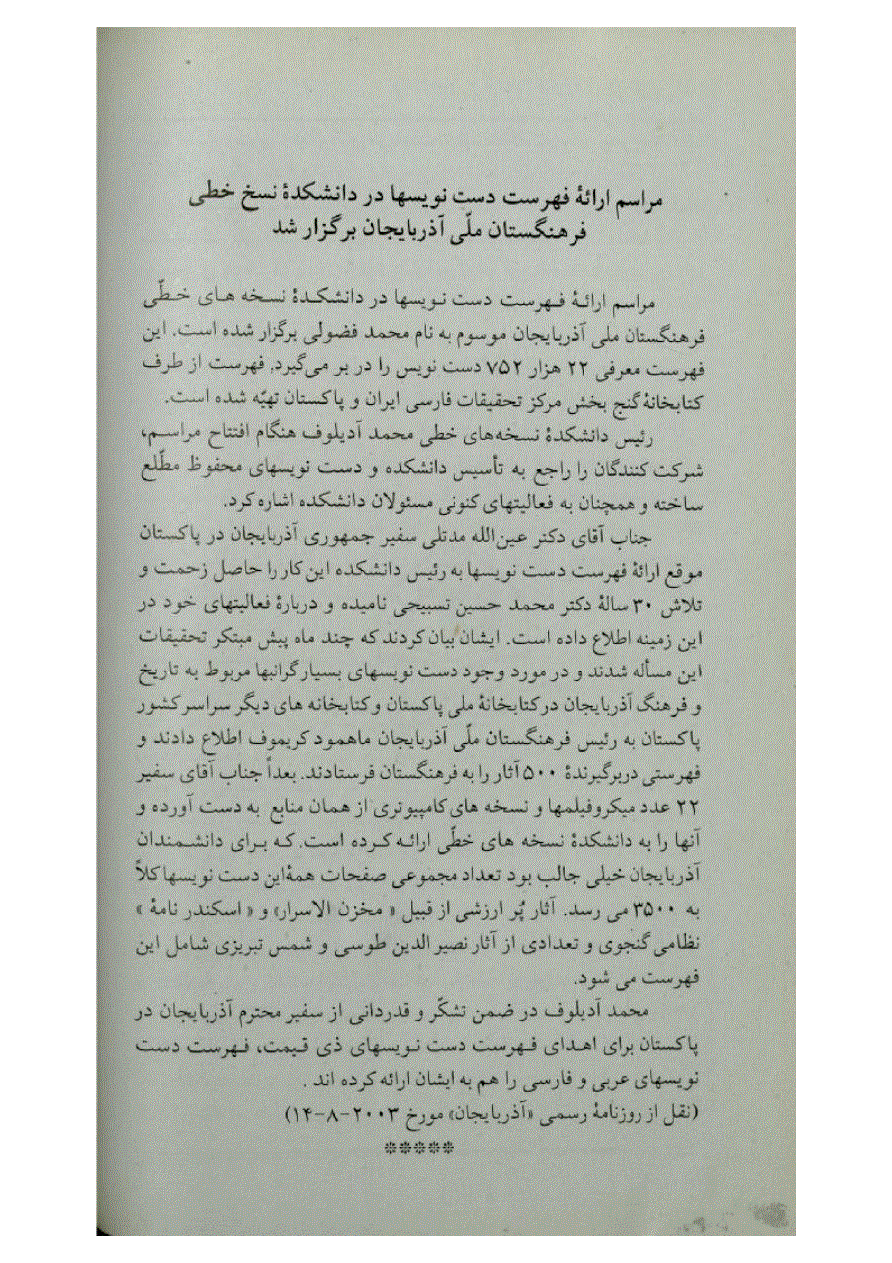 مراسم ارائۀ فهرست دست نویسها در دانشکدۀ نسخ خطی
فرهنگستان ملّی آذربایجان برگزار شد
مراسم ارائۀ فهرست دست نویسها در دانشکدۀ نسخه های خطّی
فرهنگستان ملی آذربایجان موسوم به نام محمد فضولی برگزار شده است. این
فهرست معرفی ۲۲ هزار ۷۵۲ دست نویس را در بر می‌گیرد. فهرست از طرف
کتابخانۀ گنج بخش مرکز تحقیقات فارسی ایران و پاکستان تهیّه شده است.
رئیس دانشکدۀ نسخه‌های خطی محمد آدیلوف هنگام افتتاح مراسم،
شرکت کنندگان را راجع به تأسیس دانشکده و دست نویسهای محفوظ مطّلع
ساخته و همچنان به فعالیتهای کنونی مسئولان دانشکده اشاره کرد.
جناب آقای دکتر عین‌الله مدتلی سفیر جمهوری آذربایجان در پاکستان
موقع ارائۀ فهرست دست نویسها به رئیس دانشکده این کار را حاصل زحمت و
تلاش ۳۰ سالۀ دکتر محمد حسین تسبیحی نامیده و دربارۀ فعالیتهای خود در
این زمینه اطلاع داده است. ایشان بیان کردند که چند ماه پیش مبتکر تحقیقات
این مسأله شدند و در مورد وجود دست نویسهای بسیار گرانبها مربوط به تاریخ
و فرهنگ آذربایجان در کتابخانۀ ملی پاکستان و کتابخانه های دیگر سراسر کشور
پاکستان به رئیس فرهنگستان ملّی آذربایجان ماهمود کریموف اطلاع دادند و
فهرستی دربرگیرندۀ ۵۰۰ آثار را به فرهنگستان فرستادند. بعداً جناب آقای سفیر
۲۲ عدد میکروفیلمها و نسخه های کامپیوتری از همان منابع به دست آورده و
آنها را به دانشکدۀ نسخه های خطّی ارائه کرده است. که برای دانشمندان
آذربایجان خیلی جالب بود تعداد مجموعی صفحات همۀ این دست نویسها کلاً
به ۳۵۰۰ می رسد. آثار پُر ارزشی از قبیل « مخزن الاسرار» و « اسکندر نامۀ »
نظامی گنجوی و تعدادی از آثار نصیر الدین طوسی و شمس تبریزی شامل این
فهرست می شود.
محمد آدیلوف در ضمن تشکّر و قدردانی از سفیر محترم آذربایجان در
پاکستان برای اهدای فهرست دست نویسهای ذی قیمت، فهرست دست
نویسهای عربی و فارسی را هم به ایشان ارائه کرده اند .
(نقل از روزنامۀ رسمی «آذربایجان» مورخ ۲۰۰۳-۸-۱۴)
*****